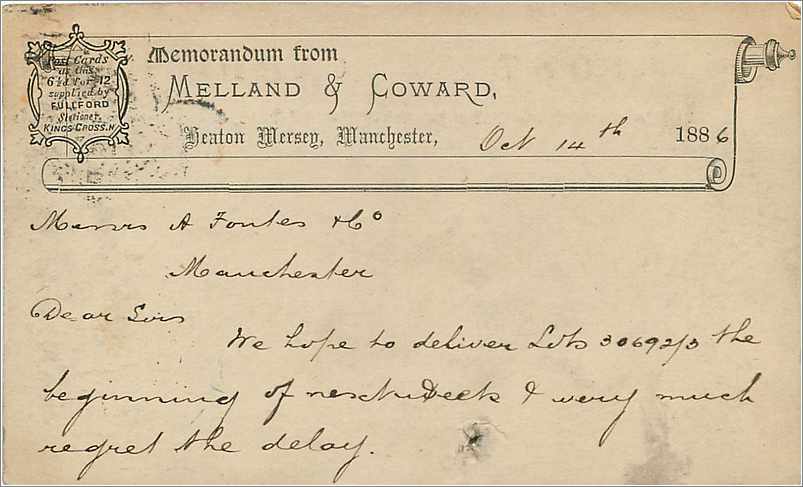 Post Cards
as this
6½d for 12
supplied by
FULLFORD
Stationer,
KINGS CROSS. N.
Memorandum from
MELLAND & COWARD,
Heaton Mersey, Manchester, Oct 14th 1886
Messrs A Foules & Co
Manchester
Dear Sirs
We hope to deliver Lots 30692/3 the
beginning of next week & very much
regret the delay.